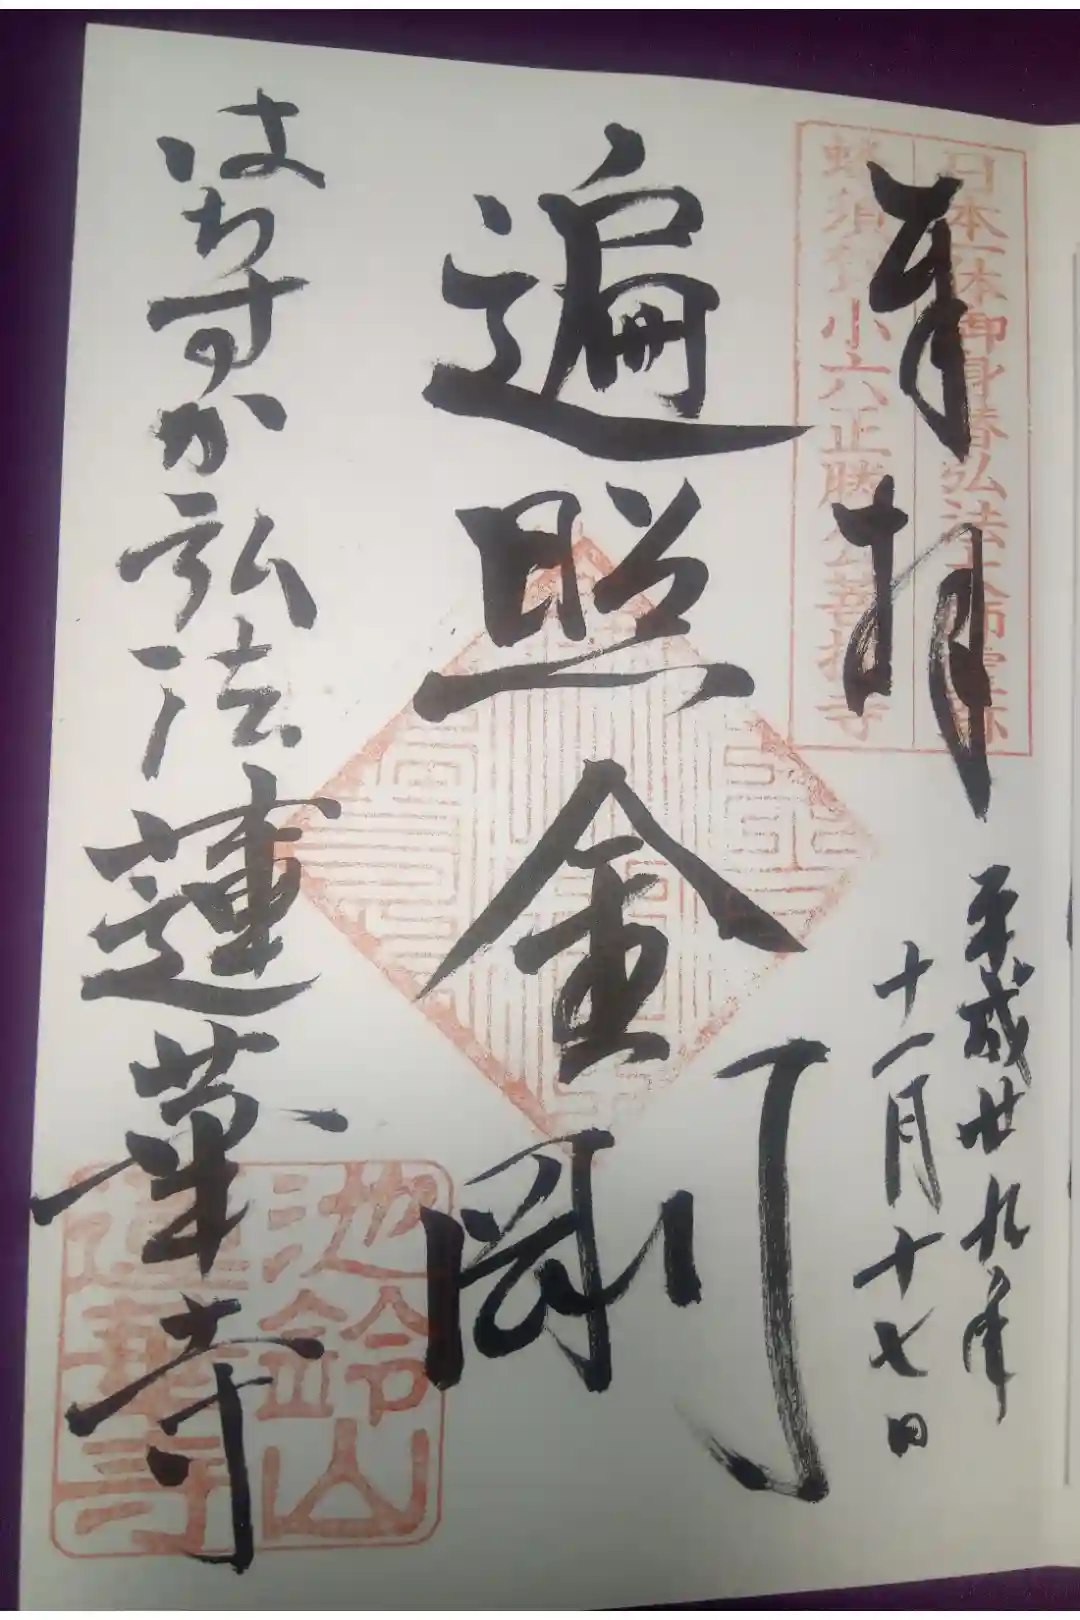 奉拝
日本一体御身替弘法大師霊跡
蜂須賀小六正勝公菩提寺
平成廿九年
十一月十七日
遍照金剛
はちすか弘法蓮華寺
池鈴山
蓮華寺